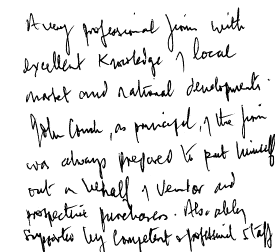 A very professional firm with
excellent knowledge of local
market and national developments.
John Couch, as principal, of the firm
was always prepared to put himself
out on behalf of Vendor and
prospective purchasers. Also ably
supported by competent & professional staff.